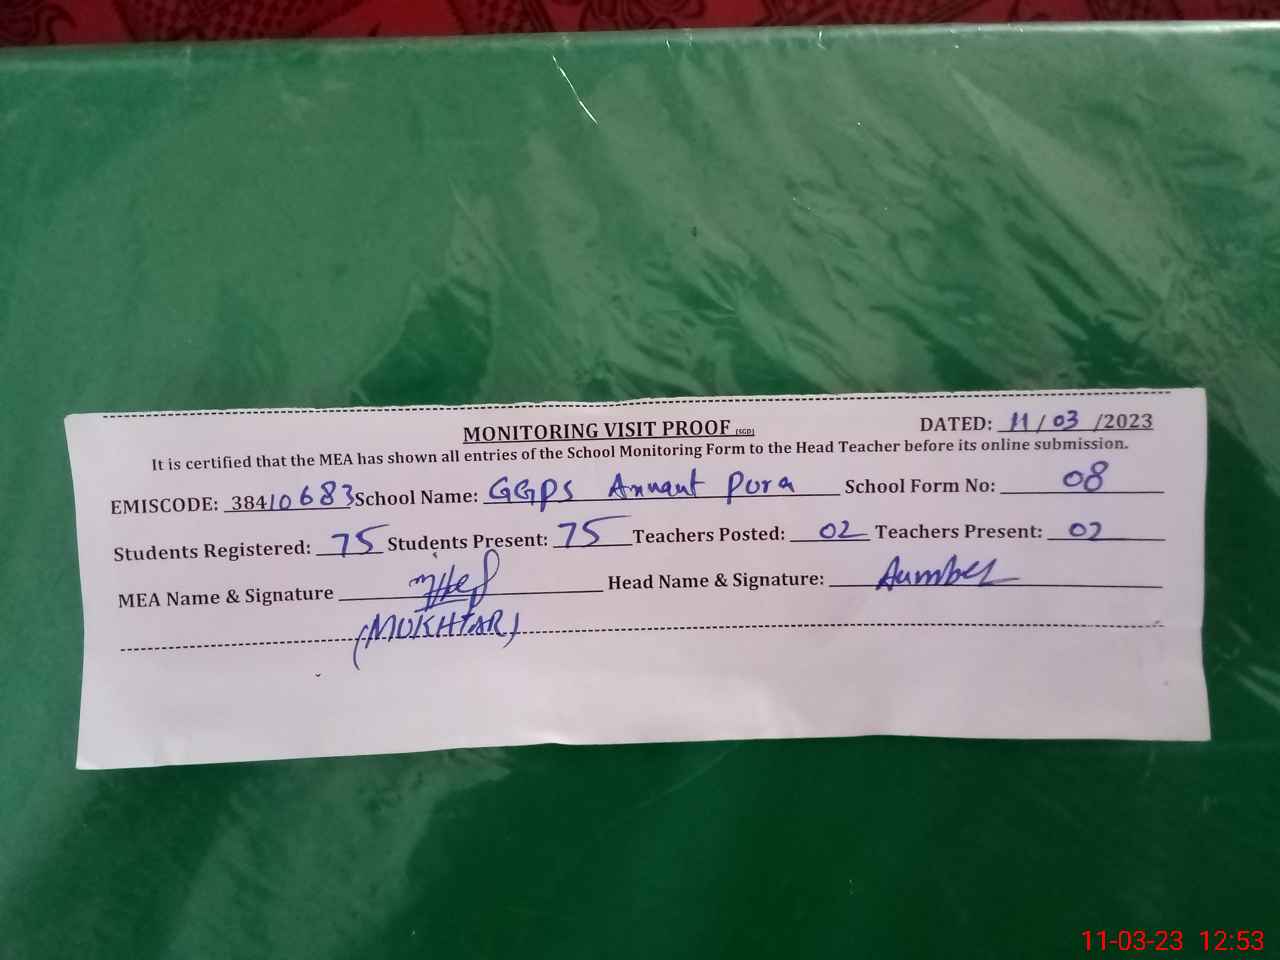 MONITORING VISIT PROOF (SGD) DATED: 11/03/2023
It is certified that the MEA has shown all entries of the School Monitoring Form to the Head Teacher before its online submission.
EMISCODE: 38410683 School Name: GGPS Annant Pura School Form No: 08
Students Registered: 75 Students Present: 75 Teachers Posted: 02 Teachers Present: 02
MEA Name & Signature Head Name & Signature:
(MUKHTAR)
11-03-23 12:53